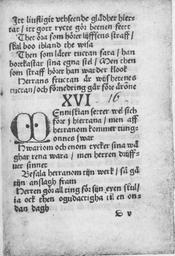 Itt lustigtt vthseende glädher hierta/
itt gott rycte gör benen feett
Thet öra som hörer lijffsens straff/
skal boo ibland the wisa
Then som låter tuctan fara/ han
bortkastar sina egna siel/ Men then
som straff hörer han warder klook
Herrans fructan är wijsheenes
tuctan/ och förnedring går före ärone
XVI
16
Menniskian setter wel sich
före j hiertana/ men aff
herranom kommer tung-
onnes swar
Hwariom och enom tycker sina wä
ghar rena wara/ men herren
sinnet
Befala herranom tijn werk/ så gå
tijn anslagh fram
Herren gör all ting för sijn eyen skul/
ia ock then ogudactigha til en on-
dan dagh